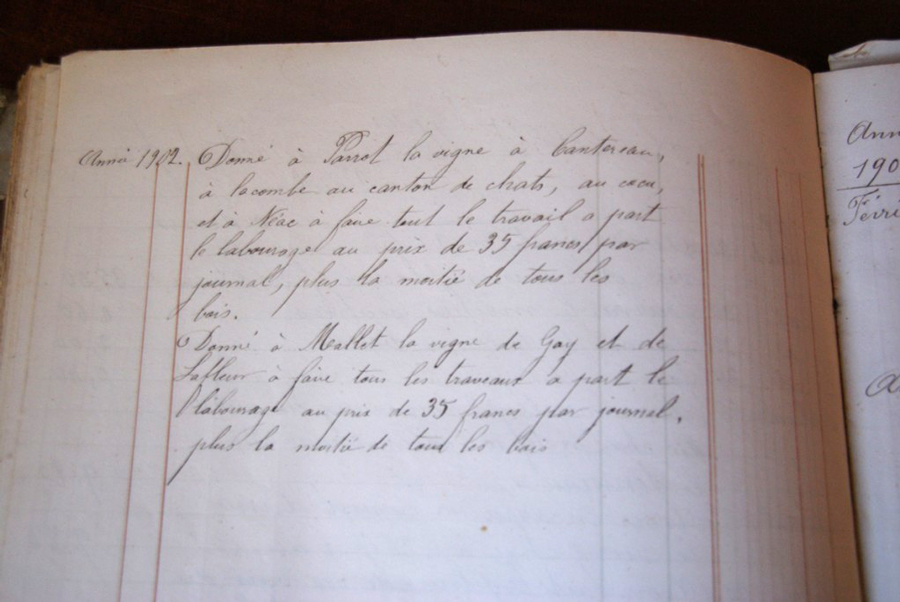 Année 1902. Donné à Parrot la vigne à Cantereau,
à lacombe au canton de chats, au cocu,
et à Néac à faire tout le travail a part
le labourage au prix de 35 francs par
journal, plus la moitié de tous les
bois.
Donné à Mallet la vigne de Gay et de
Lafleur à faire tous les traveaux a part le
labourage au prix de 35 francs par journal.
plus la moitié de tous les bois
Ann
190
Févri